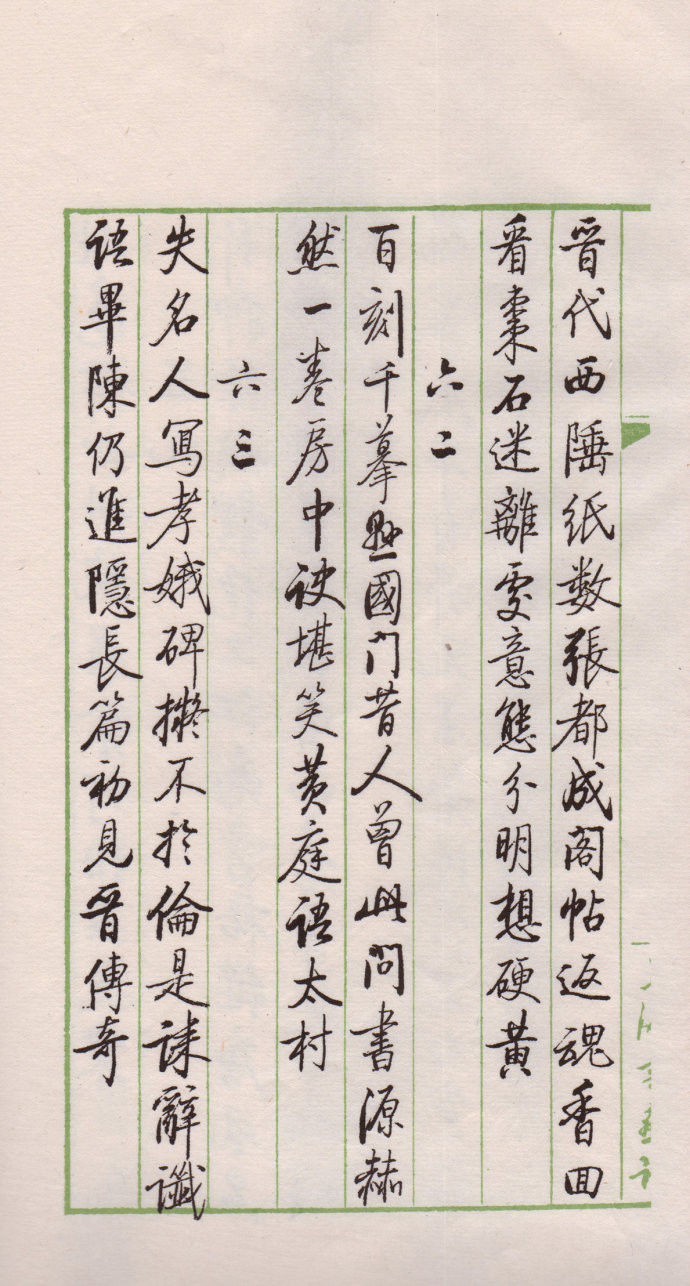 晉代西陲纸数張都成阁帖返魂香回
看棗石迷離處意態分明想硬黄
六二
百刻千摹懸國門昔人曾此問書源赫
然一卷房中诀堪笑黄庭语太村
六三
失名人寫孝娥碑擬不於倫是誄辭讖
语畢陳仍進隱長篇初見晉傳奇